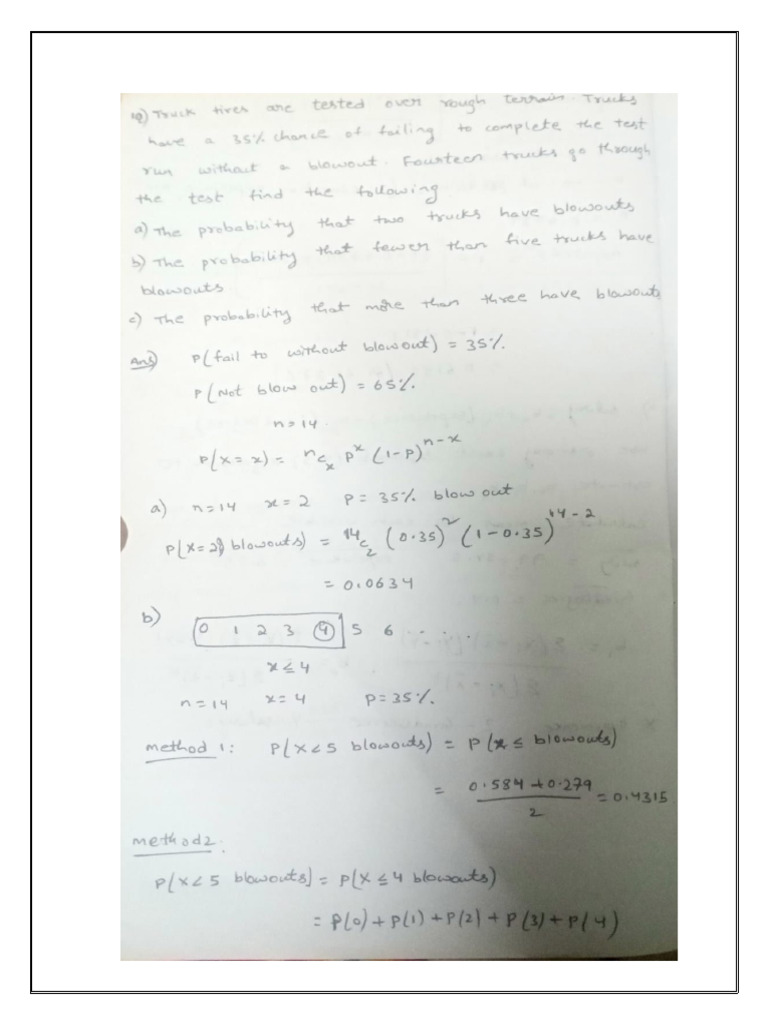 Q) Truck tires are tested over rough terrain. Trucks
have a 35% chance of failing to complete the test
run without a blowout. Fourteen trucks go through
the test find the following
a) The probability that two trucks have blowouts
b) The probability that fewer than five trucks have
blowouts
c) The probability that more than three have blowouts
Ans) P(fail to without blowout) = 35%.
P(Not blow out) = 65%.
n=14.
P(X=x) = nCx p^x (1-p)^n-x
a) n=14 x=2 P=35% blow out
P(X=2 blowouts) = 14C2 (0.35)^2 (1-0.35)^14-2
= 0.0634
b) 0 1 2 3 4 5 6 . . . .
x≤4
n=14 x=4 P=35%.
method 1: P(X<5 blowouts) = P(x≤ blowouts)
= 0.584+0.279/2 = 0.4315
method2:
P(X<5 blowouts) = P(X≤4 blowouts)
= P(0)+P(1)+P(2)+P(3)+P(4)